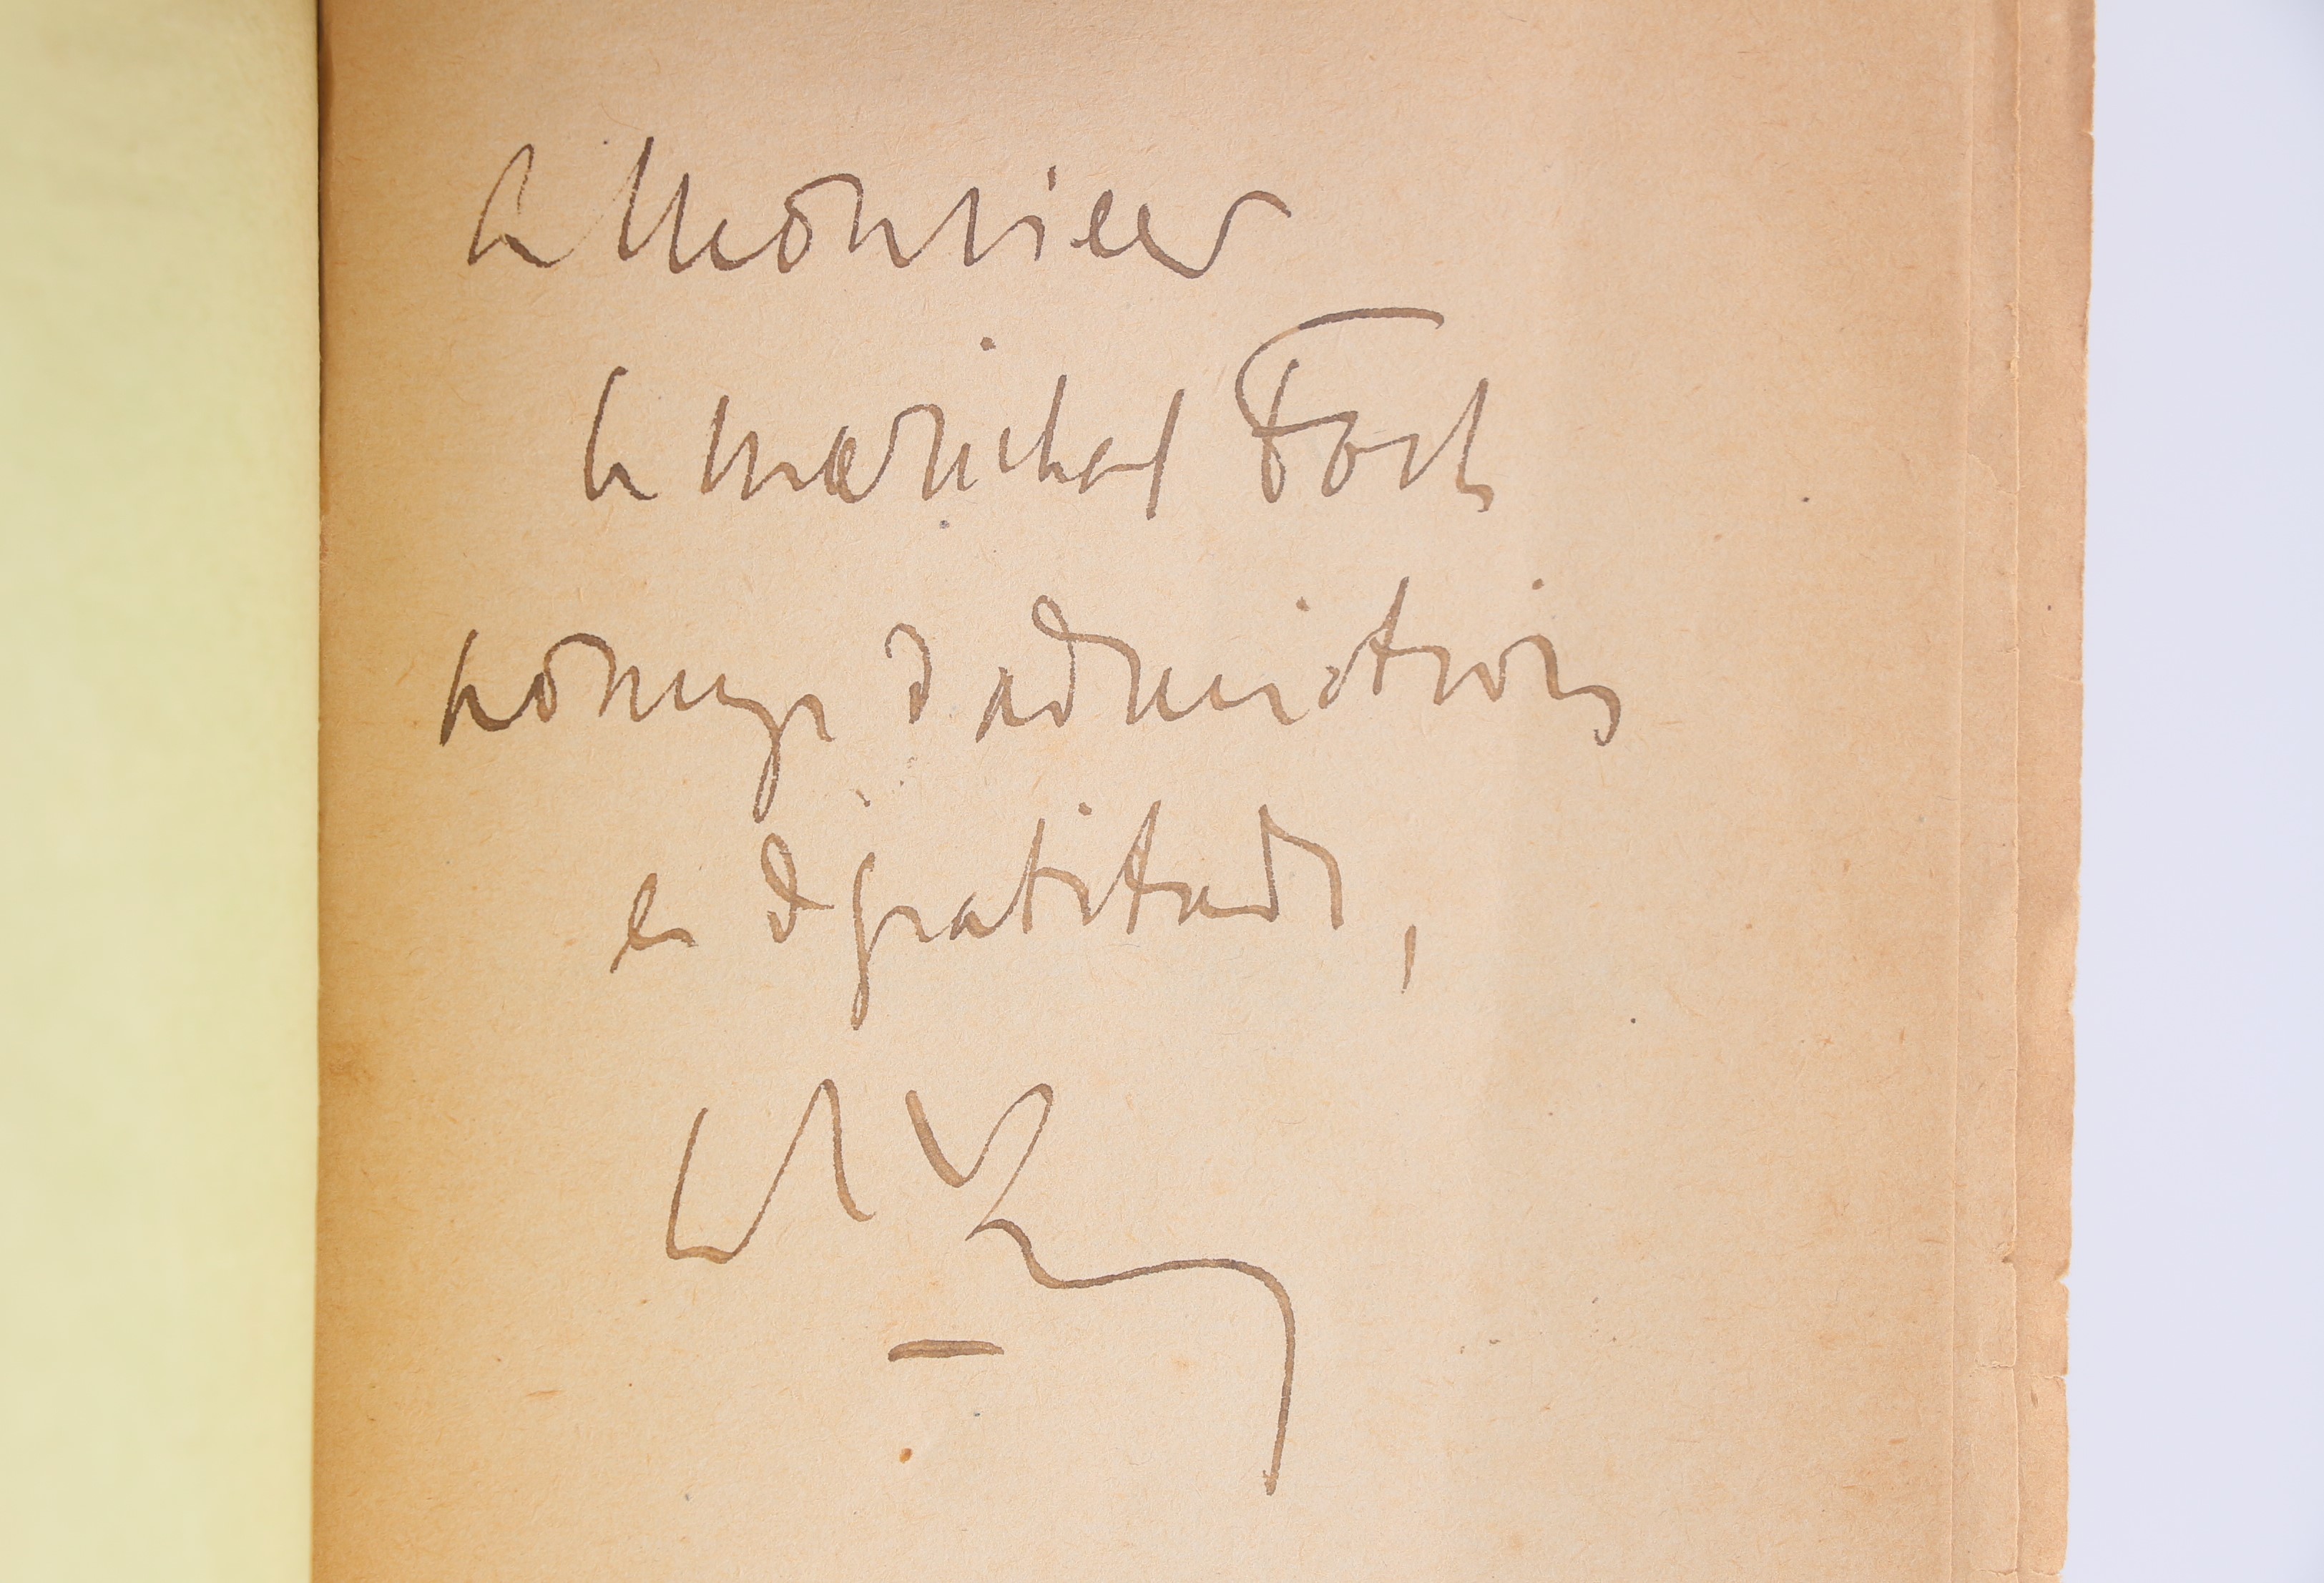 à Monsieur
le maréchal Foch
hommage d'admiration
et de gratitude,